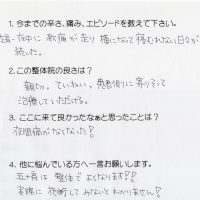 1. 今までの辛さ、痛み、エピソードを教えて下さい。
夜中に激痛が走り横になって寝むれない日々が
続した。
2.この整体院の良さは?
親切。ていねい。患者側に寄りそって
治療していただける。
3. ここに来て良かったなぁと思ったことは?
夜間痛がなくなった!
4. 他に悩んでいる方へ一言お願いします。
五十肩は整体でよくなります?!
実際に施術してみないとわかりません!